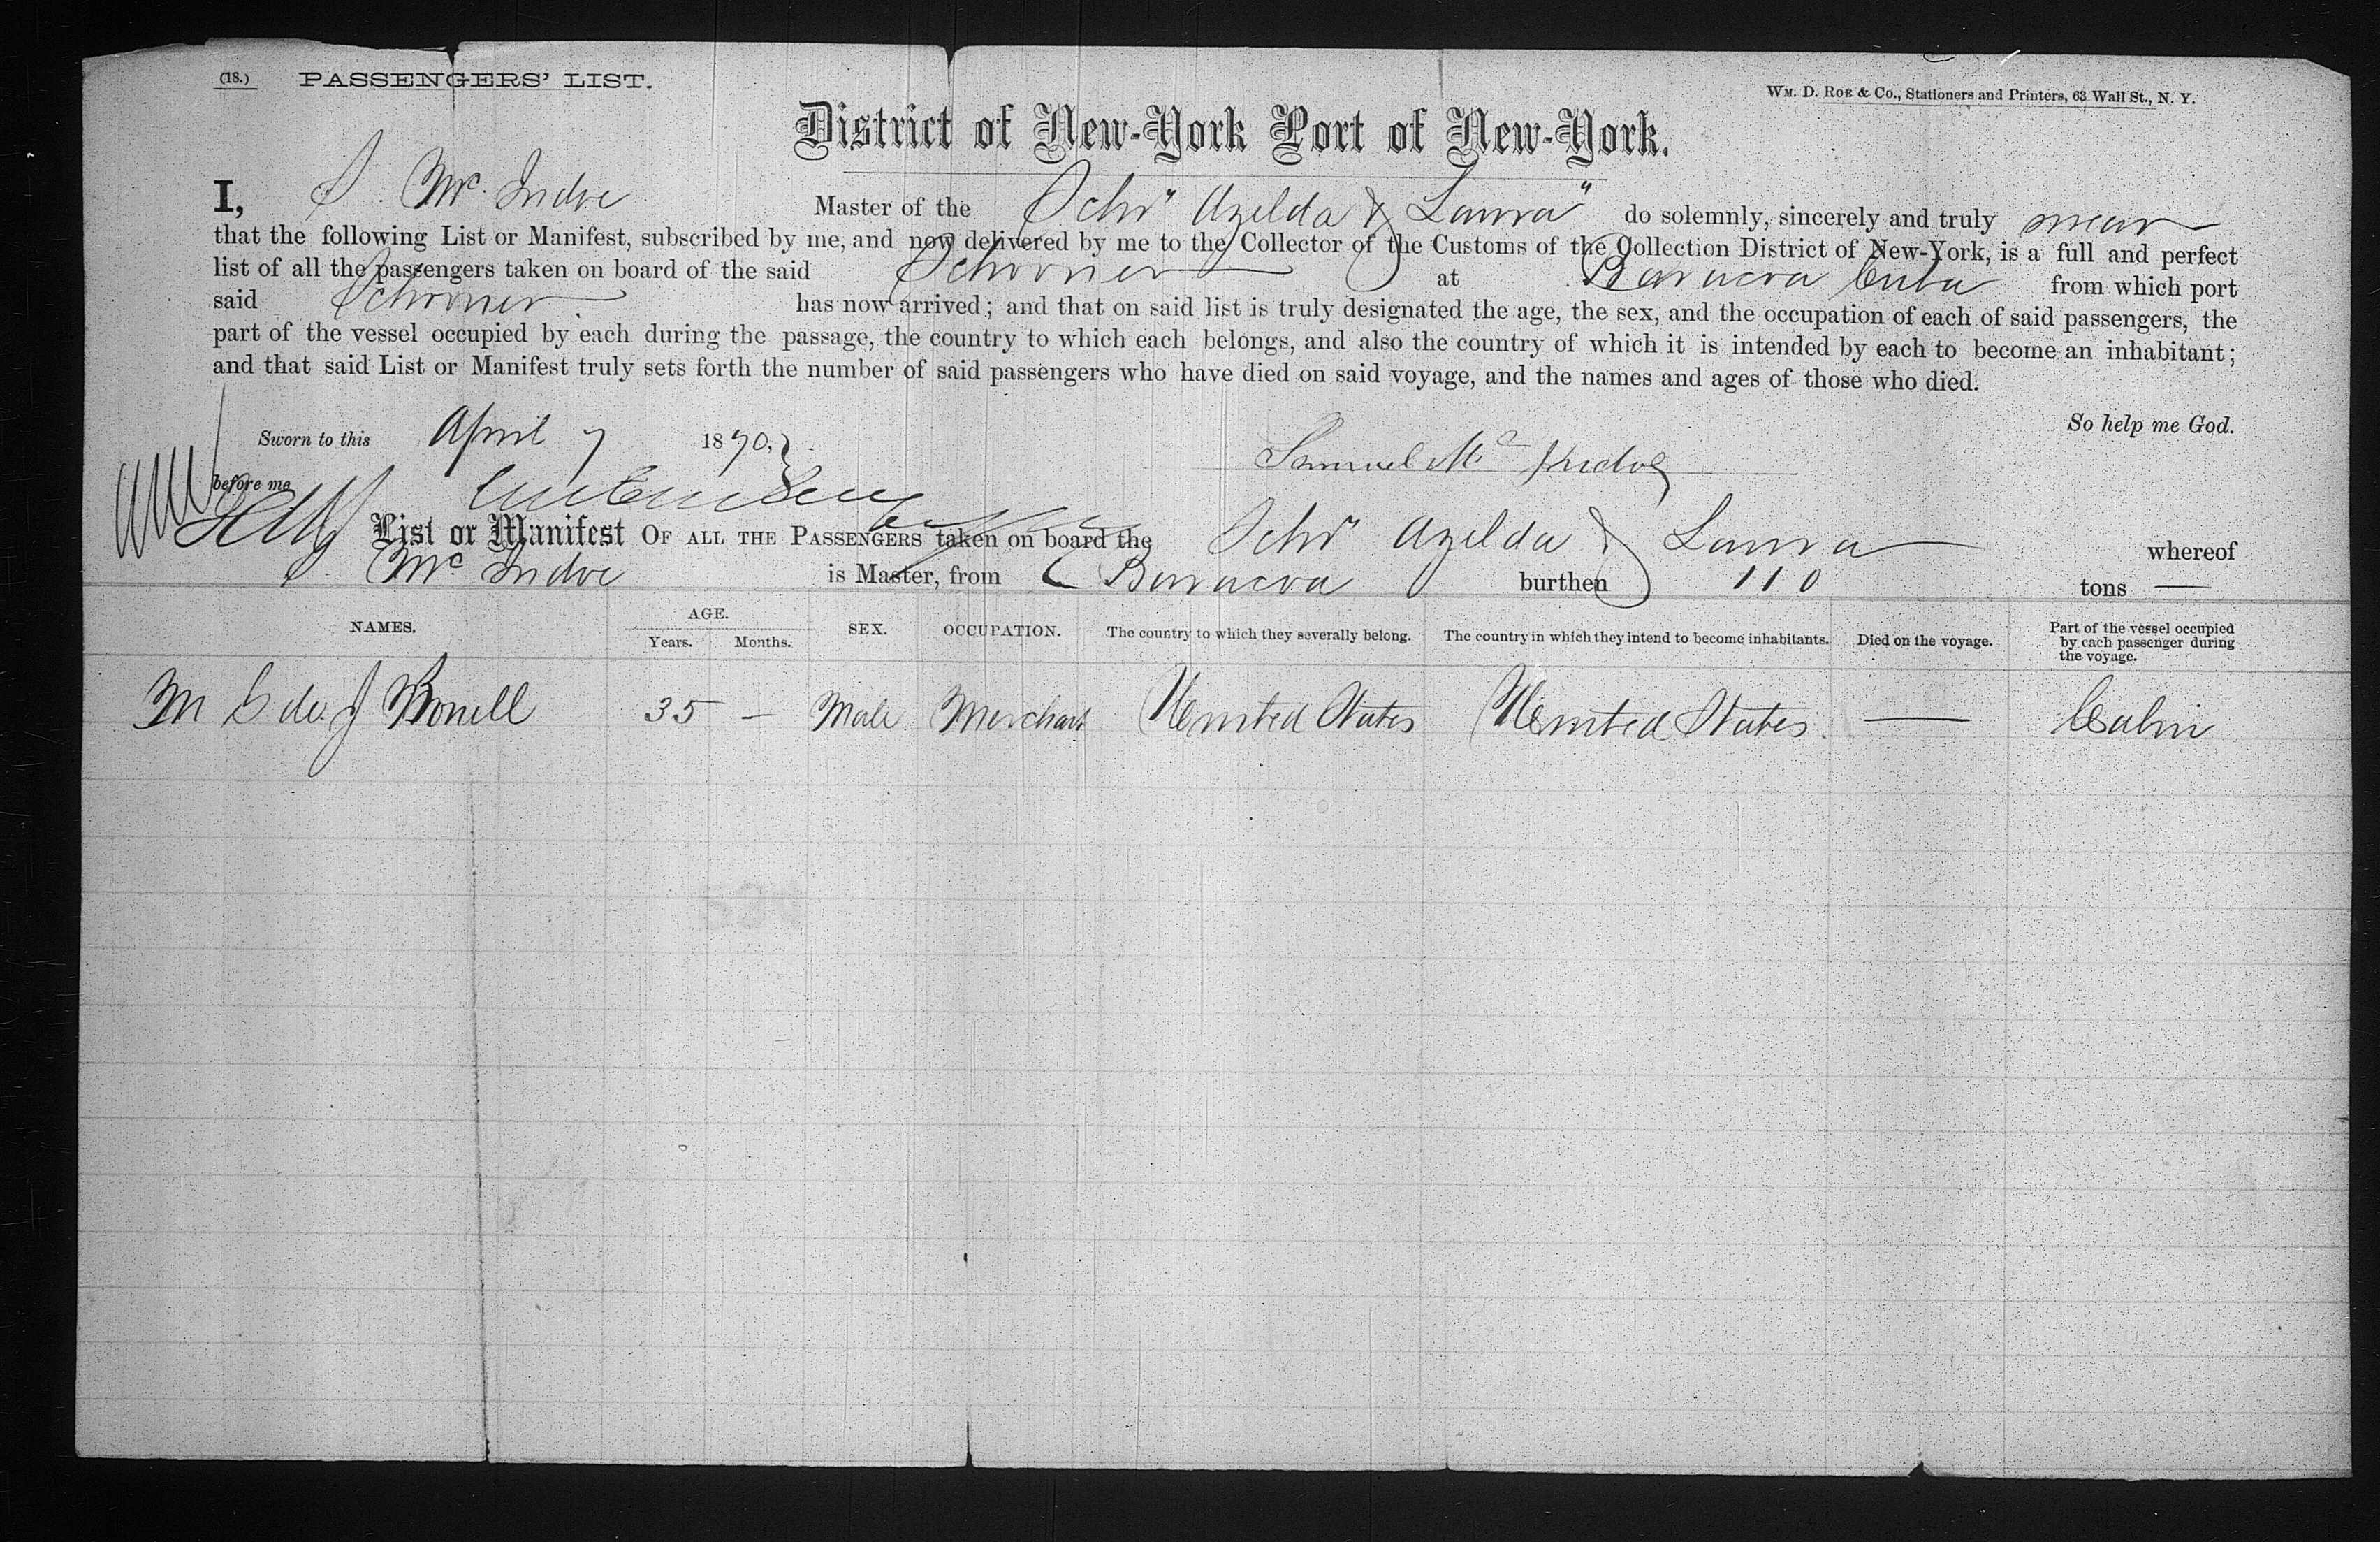 (18.) PASSENGERS' LIST.
WM. D. ROE & CO., Stationers and Printers, 63 Wall St., N. Y.
District of New-York Port of New-York.
I, S. Mc. Indoe Master of the Schr "Azelda & Laura" do solemnly, sincerely and truly swear
that the following List or Manifest, subscribed by me, and now delivered by me to the Collector of the Customs of the Collection District of New-York, is a full and perfect
list of all the passengers taken on board of the said Schooner at Baracoa Cuba from which port
said Schooner has now arrived; and that on said list is truly designated the age, the sex, and the occupation of each of said passengers, the
part of the vessel occupied by each during the passage, the country to which each belongs, and also the country of which it is intended by each to become an inhabitant;
and that said List or Manifest truly sets forth the number of said passengers who have died on said voyage, and the names and ages of those who died.
So help me God.
Sworn to this April 7 1870,
Samuel Mc Indoe
before me
List or Manifest OF ALL THE PASSENGERS taken on board the Schr Azelda & Laura whereof
S. Mc Indoe is Master, from Baracoa burthen 110 tons —
NAMES. AGE. Years. Months. SEX. OCCUPATION. The country to which they severally belong. The country in which they intend to become inhabitants. Died on the voyage. Part of the vessel occupied by each passenger during the voyage.
M J 35 — Male Merchant United States United States — Cabin